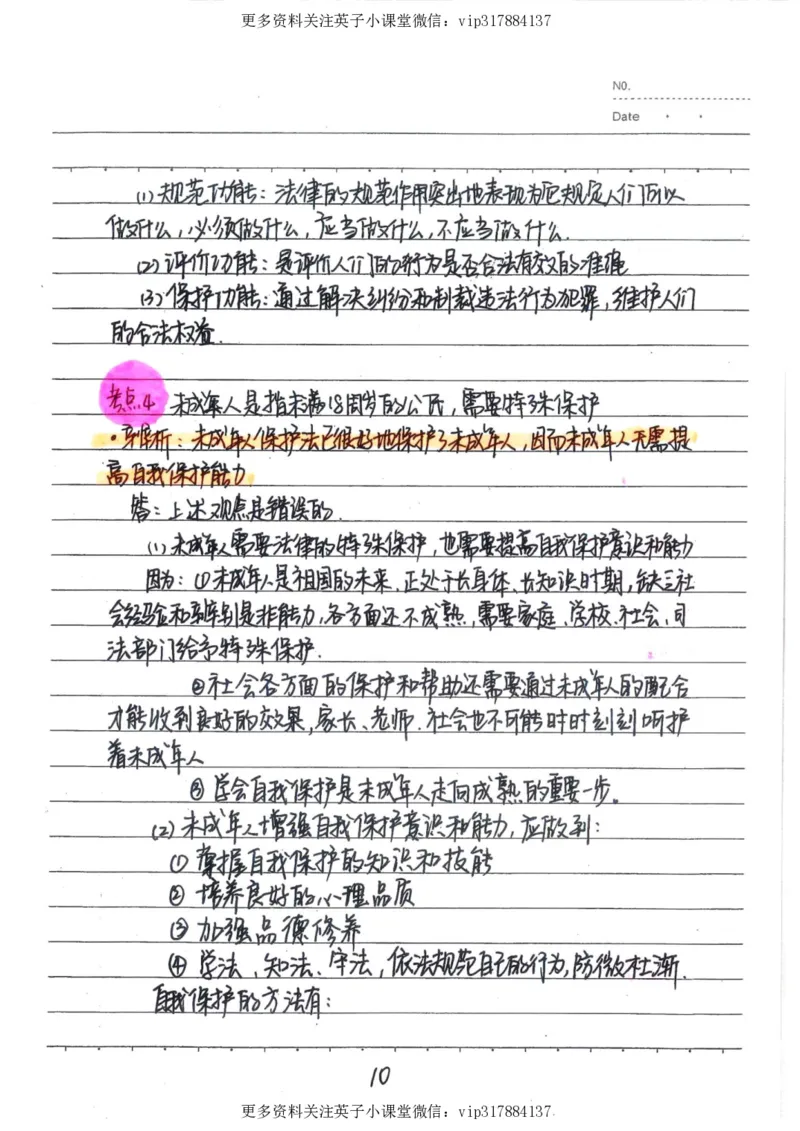 更多资料关注英子小课堂微信：vip317884137
NO.
Date
(1)规范功能：法律的规范作用突出地表现为它规定人们可以
做什么，必须做什么，应当做什么，不应当做什么.
(2)评价功能：是评价人们的行为是否合法有效的准绳
(3)保护功能：通过解决纠纷和制裁违法行为犯罪，维护人们
的合法权益.
考点4 未成年人是指未满18周岁的公民，需要特殊保护
·辨析：未成年人保护法已很好地保护了未成年人，因而未成年人无需提
高自我保护能力
答：上述观点是错误的.
(1)未成年人需要法律的特殊保护，也需要提高自我保护意识和能力
因为：①未成年人是祖国的未来，正处于长身体、长知识时期，缺乏社
会经验和辨别是非能力，各方面还不成熟，需要家庭、学校、社会、司
法部门给予特殊保护.
②社会各方面的保护和帮助还需要通过未成年人的配合
才能收到良好的效果，家长、老师.社会也不可能时时刻刻呵护
着未成年人
③学会自我保护是未成年人走向成熟的重要一步.
(2)未成年人增强自我保护意识和能力，应做到：
①掌握自我保护的知识和技能
②培养良好的心理品质
③加强品德修养
④学法、知法、守法，依法规范自己的行为，防微杜渐.
自我保护的方法有：
10
更多资料关注英子小课堂微信：vip317884137